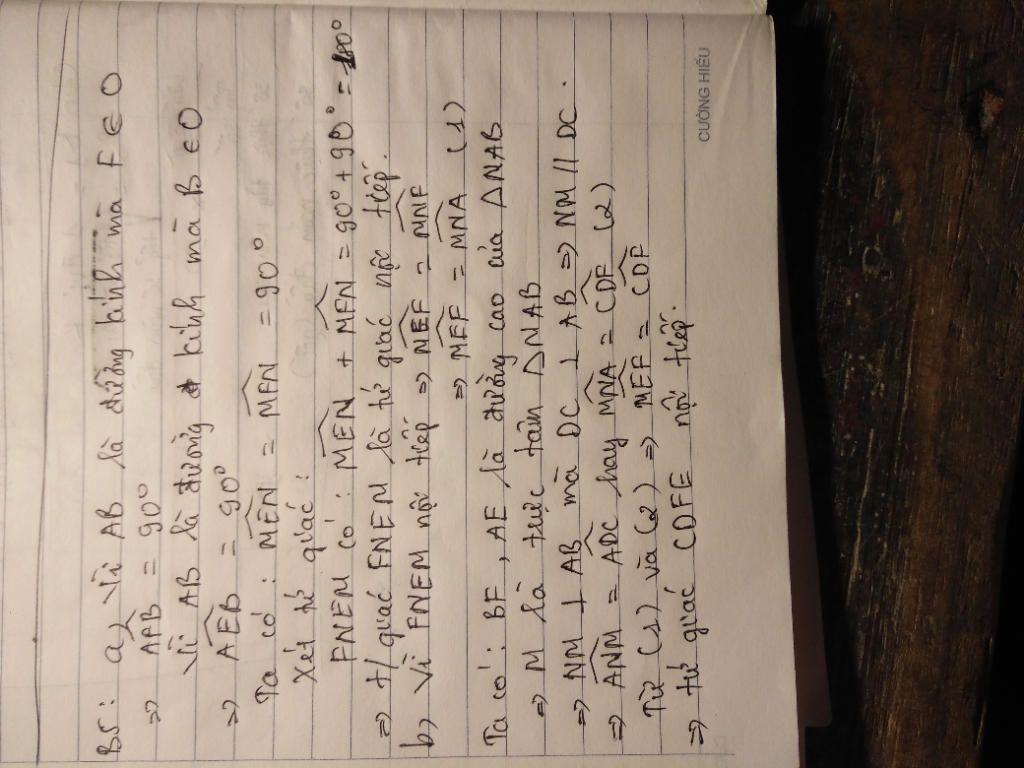 B5: a, Vì AB là đường kính mà F ∈ O
⇒ AFB = 90°
Vì AB là đường kính mà B ∈ O
⇒ AEB = 90°
Ta có: MEN = MFN = 90°
Xét tứ giác:
FNEM có: MEN + MFN = 90° + 90° = 180°
⇒ t/giác FNEM là tứ giác nội tiếp.
b, Vì FNEM nội tiếp ⇒ NEF = MNF
⇒ MEF = MNA (1)
Ta có: BF, AE là đường cao của ΔNAB
⇒ M là trực tâm ΔNAB
⇒ NM ⊥ AB mà DC ⊥ AB ⇒ NM // DC.
⇒ ANM = ADC hay MNA = CDF (2)
Từ (1) và (2) ⇒ MEF = CDF
⇒ tứ giác CDFE nội tiếp.
CƯỜNG HIẾU